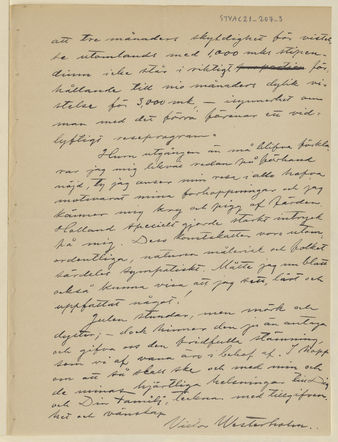 STYAC21-207-3
att tre månaders skyldighet för vistel-
se utomlands med 1,000 mks stipen-
dium icke står i riktigt proportion för-
hållande till nio månaders dylik vi-
stelse för 3,000 mk, — isynnerhet om
man med det förra förenar ett vid-
lyftigt reseprogram.
Huru utgången än må blifva förkla-
rar jag mig likväl redan på förhand
nöjd, ty jag anser min resa i allo hafva
motsvarat mina förhoppningar och jag
känner mig kry och pigg af färden
Holland speciellt gjorde starkt intryck
på mig. Dess konstskatter voro utom-
ordentliga, naturen målerisk och folket
särdeles sympatiskt. Måtte jag nu blott
också kunna visa att jag sett, lärt och
uppfattat något!
Julen stundar, men mörk och
dyster, — dock hinner den ju än antaga
och gifva oss den fridfulla stämning,
som vi af vana äro i behof af. I hopp
om att så skall ske och med min och
de minas hjärtliga helsningar till Dig
och Din familj, tecknar med tillgifven-
het och vänskap
Victor Westerholm.